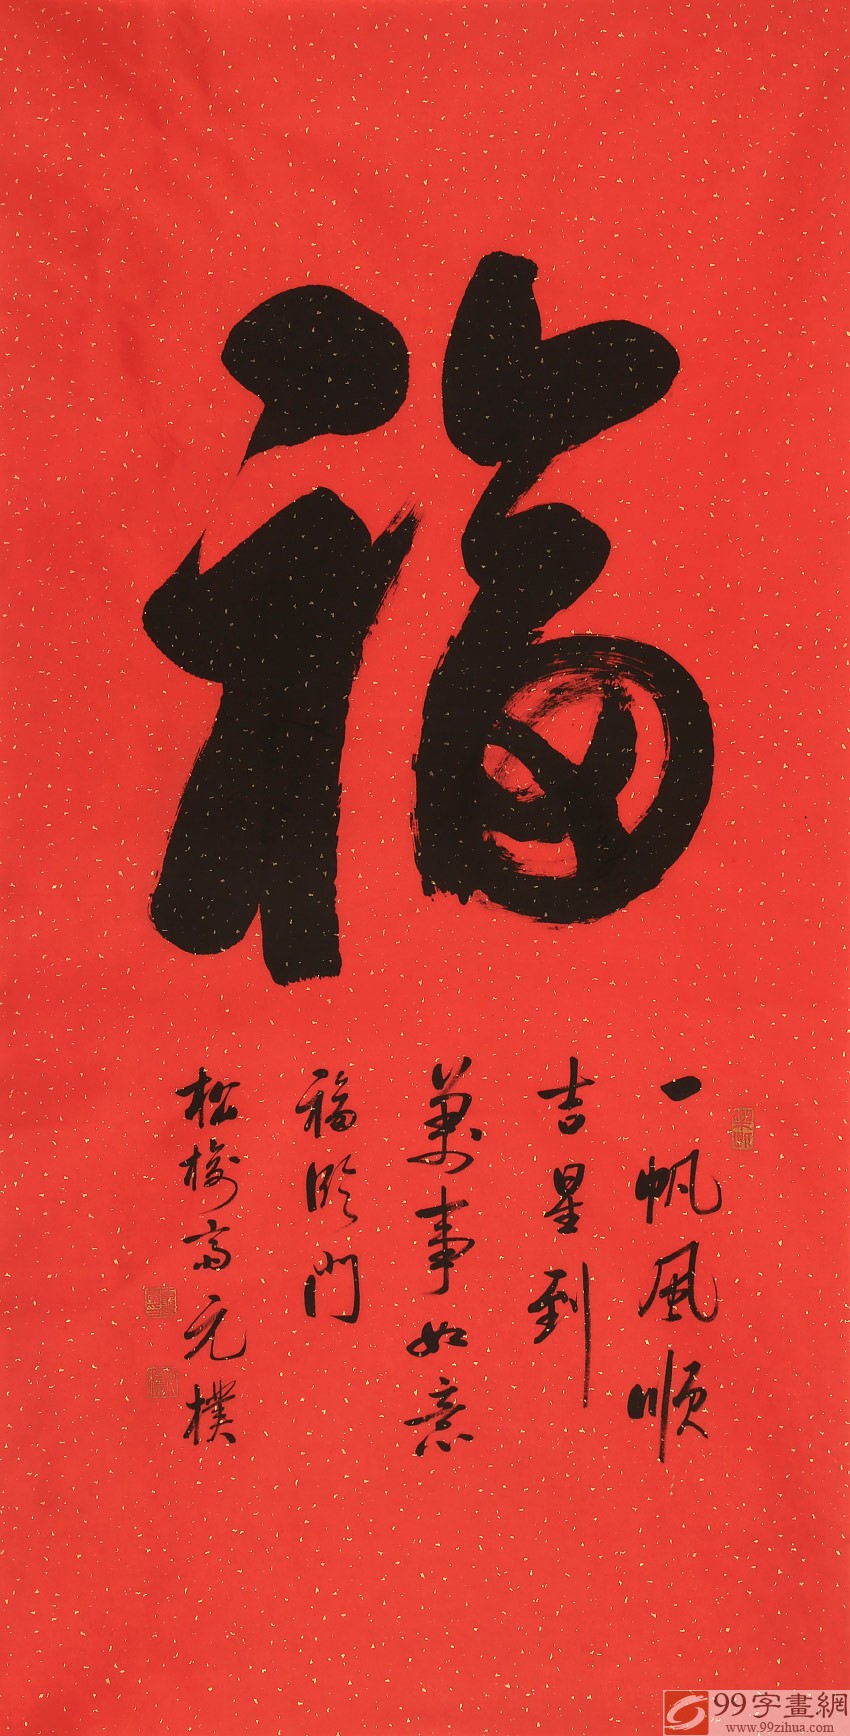 福
一帆风顺
吉星到
萬事如意
福临門
松梅高元樸
99字畫網
www.99zihua.com